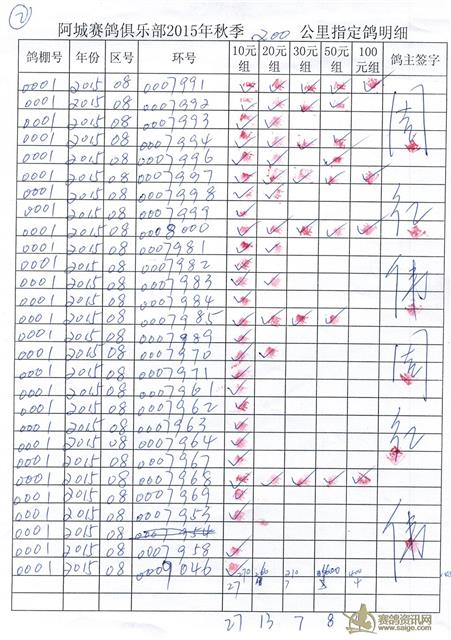 ②
阿城赛鸽俱乐部2015年秋季 200 公里指定鸽明细
鸽棚号 年份 区号 环号 10元组 20元组 30元组 50元组 100元组 鸽主签字
0001 2015 08 0007991 ✓ ✓ ✓ ✓ ✓
0001 2015 08 0007992 ✓ ✓ ✓ ✓
0001 2015 08 0007993 ✓ ✓
0001 2015 08 0007994 ✓ ✓ ✓ ✓
0001 2015 08 0007996 ✓ ✓ ✓
0001 2015 08 0007997 ✓ ✓ ✓ ✓ ✓
0001 2015 08 0007998 ✓ ✓
0001 2015 08 0007999 ✓
0001 2015 08 0008000 ✓ ✓ ✓ ✓ ✓
0001 2015 08 0007981 ✓ ✓
0001 2015 08 0007982 ✓
0001 2015 08 0007983 ✓ ✓
0001 2015 08 0007984 ✓
0001 2015 08 0007985 ✓ ✓ ✓ ✓
0001 2015 08 0007989 ✓
0001 2015 08 0007970 ✓ ✓
0001 2015 08 0007971 ✓
0001 2015 08 0007961 ✓
0001 2015 08 0007962 ✓
0001 2015 08 0007963 ✓
0001 2015 08 0007964 ✓
0001 2015 08 0007967 ✓
0001 2015 08 0007968 ✓ ✓ ✓ ✓ ✓
0001 2015 08 0007969
0001 2015 08 0007953 ✓
0001 2015 08 0007954
0001 2015 08 0007958 ✓
0001 2015 08 0009046 ✓
周
红
伟
周
红
伟
270 260 210 400 400
27 7 4
27 13 7 8 4
赛鸽资讯网
www.saige.com